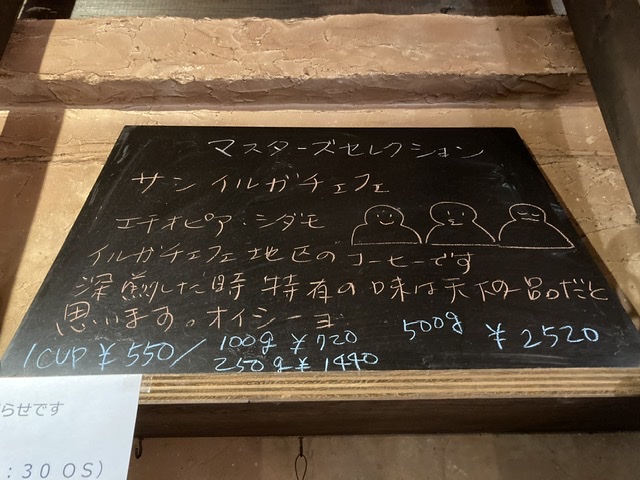 マスターズセレクション
サン イルガチェフェ
エチオピア・シダモ
イルガチェフェ地区のコーヒーです
深煎した時 特有の味は天下の品だと
思います。オイシーヨ
1CUP ¥550/ 100g ¥720
250g ¥1440
500g ¥2520
らせです
:30 OS)